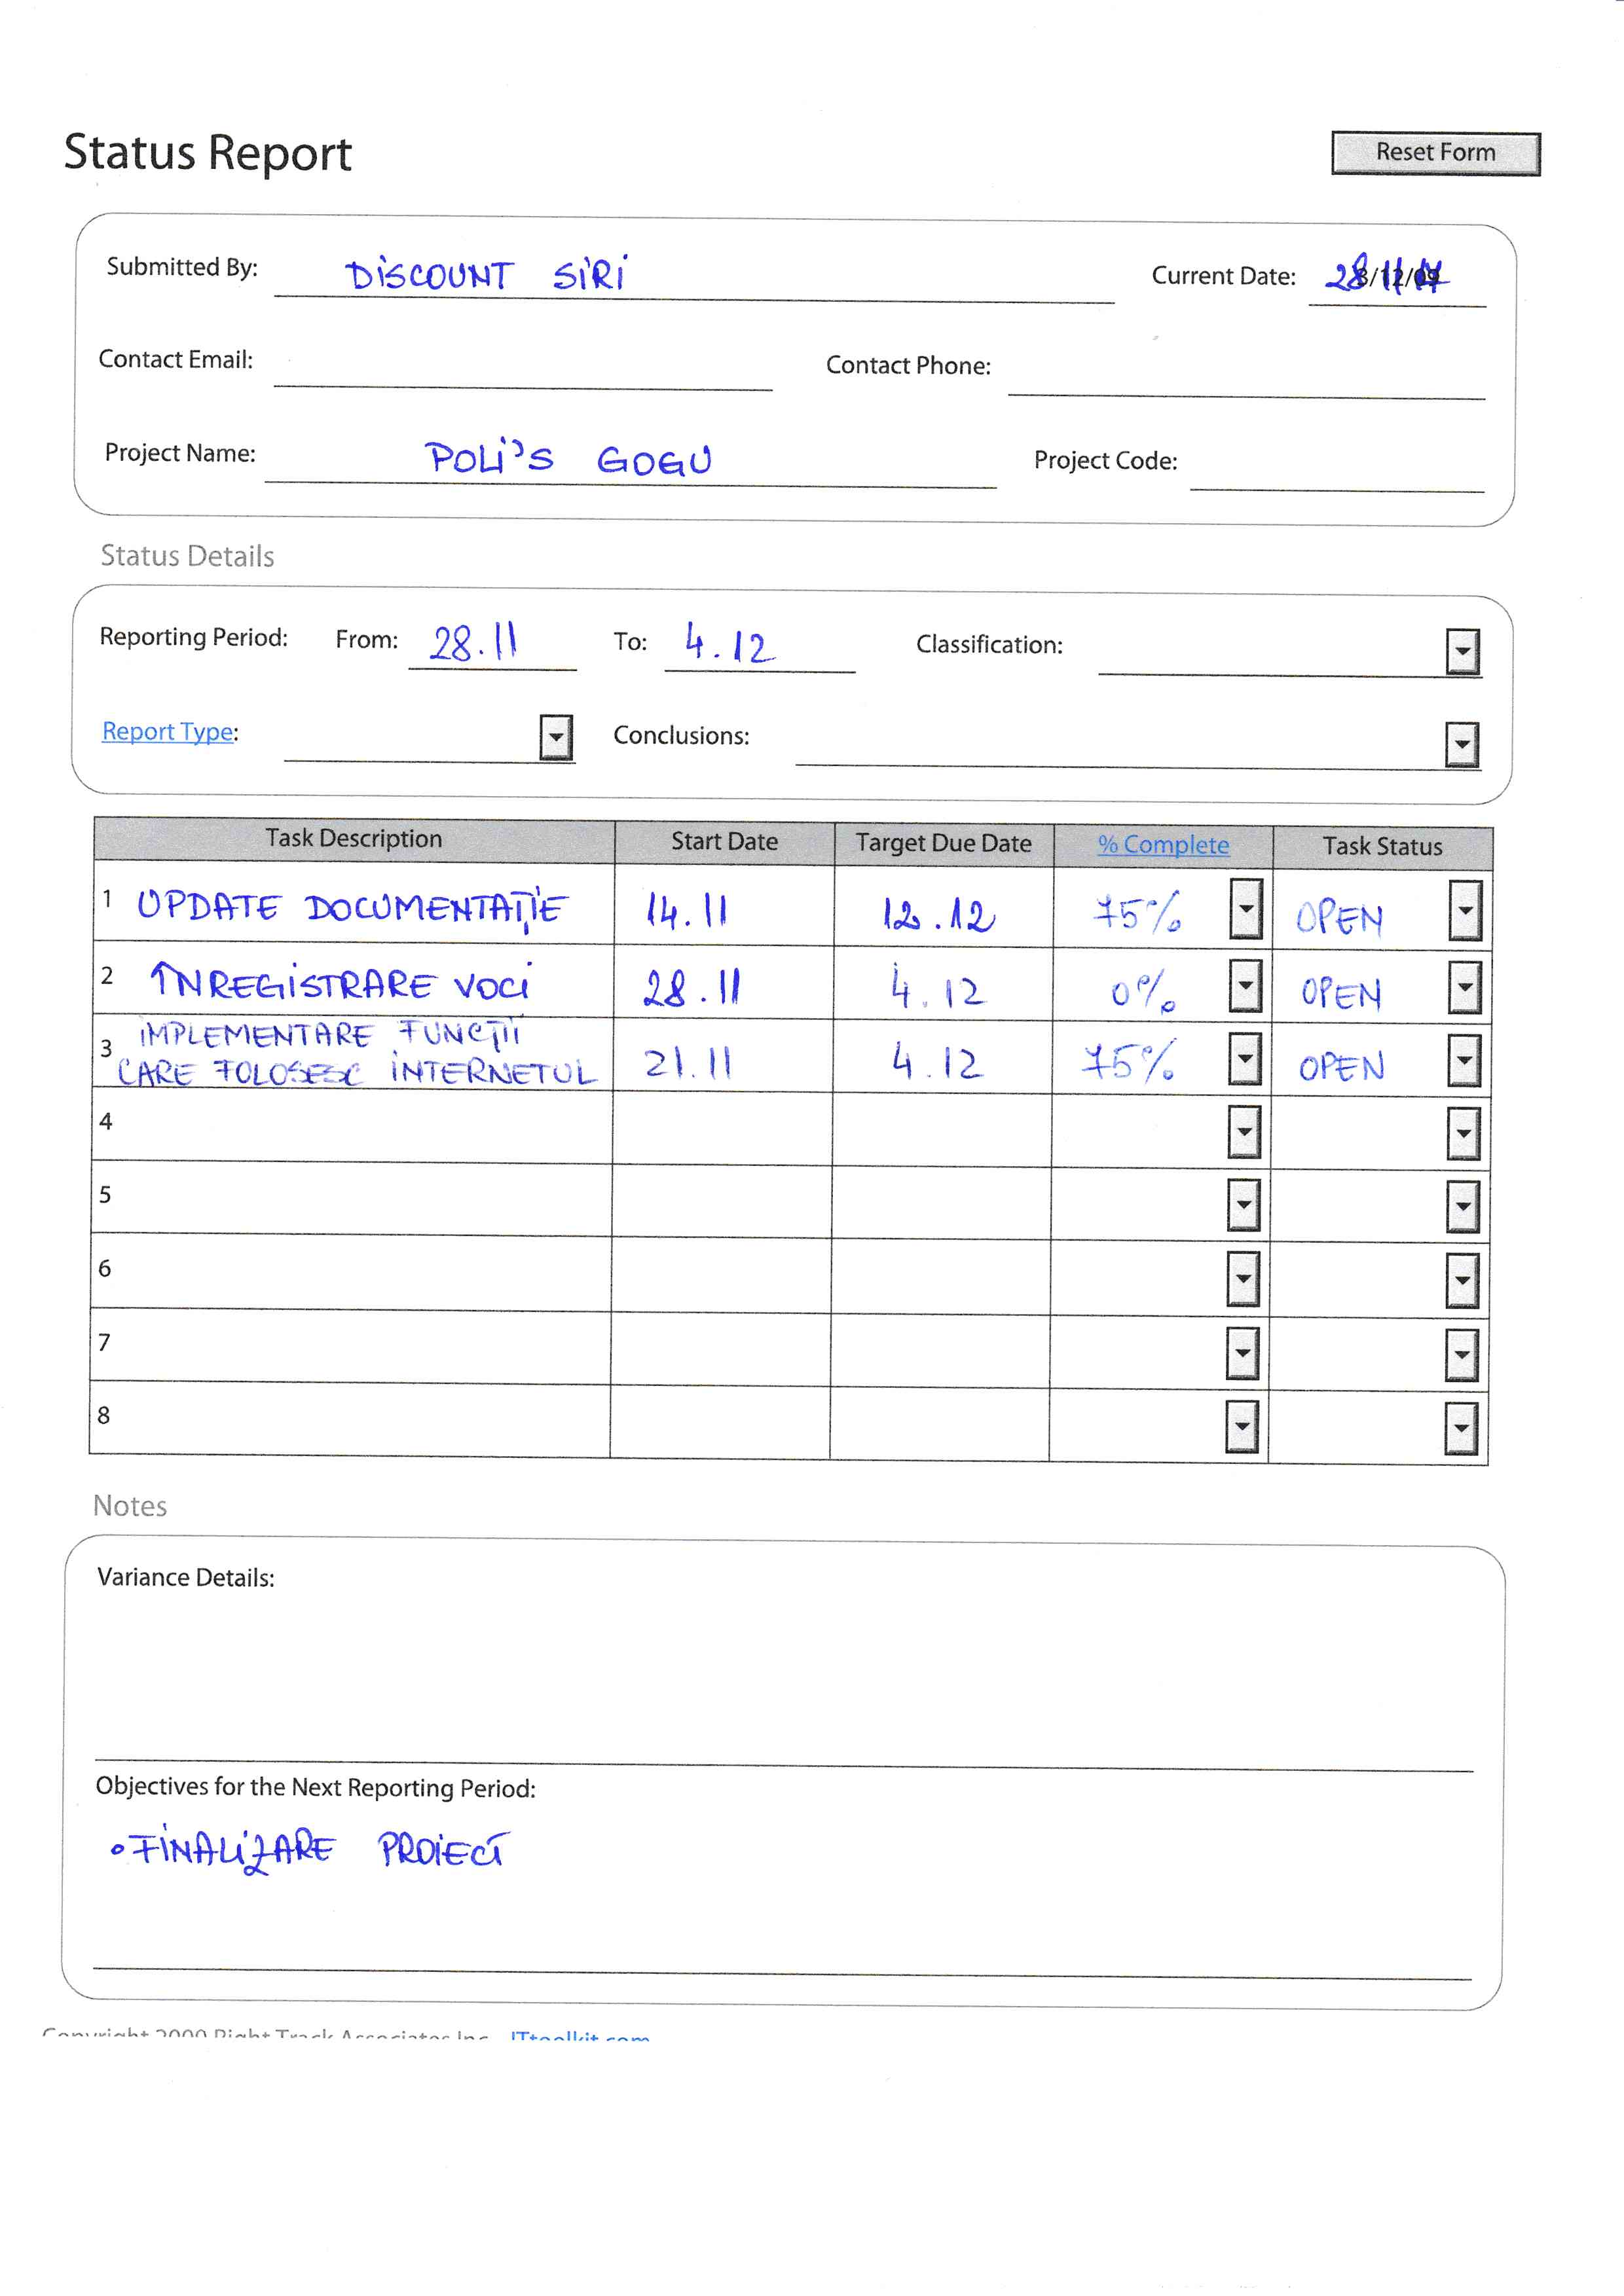 Status Report
Reset Form
Submitted By: DISCOUNT SIRI Current Date: 28/11/17
Contact Email: Contact Phone:
Project Name: POLI'S GOGU Project Code:
Status Details
Reporting Period: From: 28.11 To: 4.12 Classification:
Report Type: Conclusions:
Task Description Start Date Target Due Date % Complete Task Status
1 UPDATE DOCUMENTAȚIE 14.11 12.12 75% OPEN
2 ÎNREGISTRARE VOCI 28.11 4.12 0% OPEN
3 IMPLEMENTARE FUNCȚII
CARE FOLOSESC INTERNETUL 21.11 4.12 75% OPEN
4
5
6
7
8
Notes
Variance Details:
Objectives for the Next Reporting Period:
• FINALIZARE PROIECT
Copyright 2000 Right Track Associates Inc. ITtoolkit.com